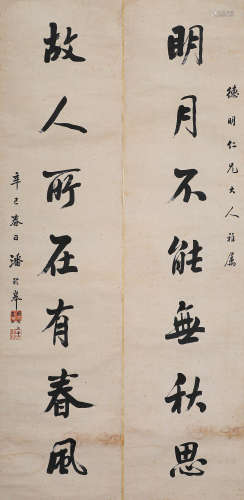 德明仁兄大人雅属
明月不能無秋思
故人所在有春風
辛巳春日潘齡皋